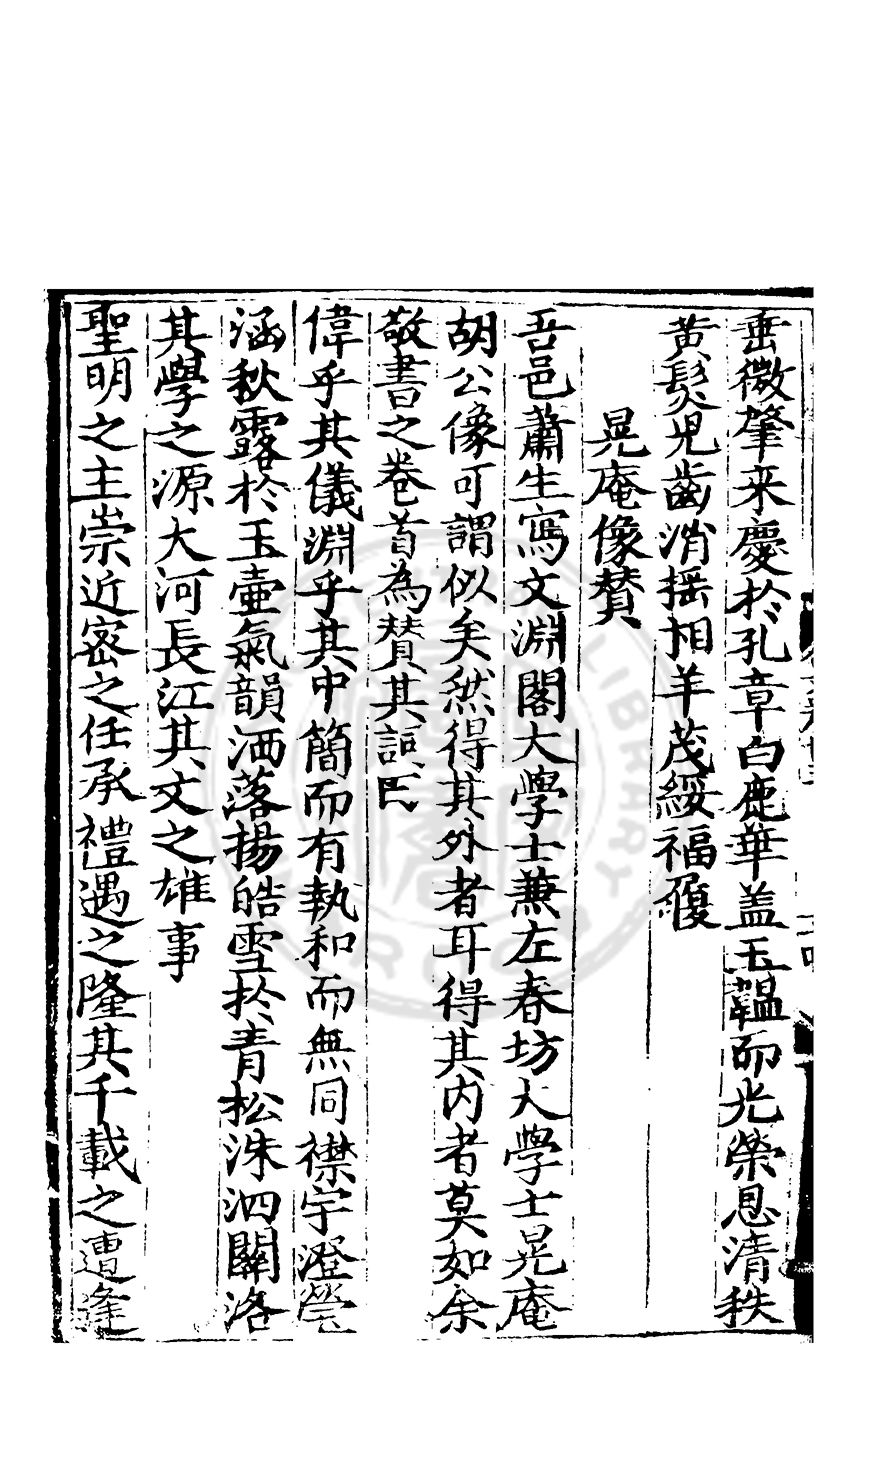 垂徽肇来慶扵孔章白鹿華盖玉韞而光榮恩清秩
黄髮兒齒消揺相羊茂綏福履
晃庵像賛
吾邑蕭生寫文淵閣大學士兼左春坊大學士晃庵
胡公像可謂似矣然得其外者耳得其内者莫如余
敬書之卷首為賛其詞曰
偉乎其儀淵乎其中簡而有執和而無同襟宇澄瑩
涵秋露扵玉壷氣韻洒落揚皓雪扵青松洙泗關洛
其學之源大河長江其文之雄事
聖明之主崇近密之任承禮遇之隆其千載之遭逢